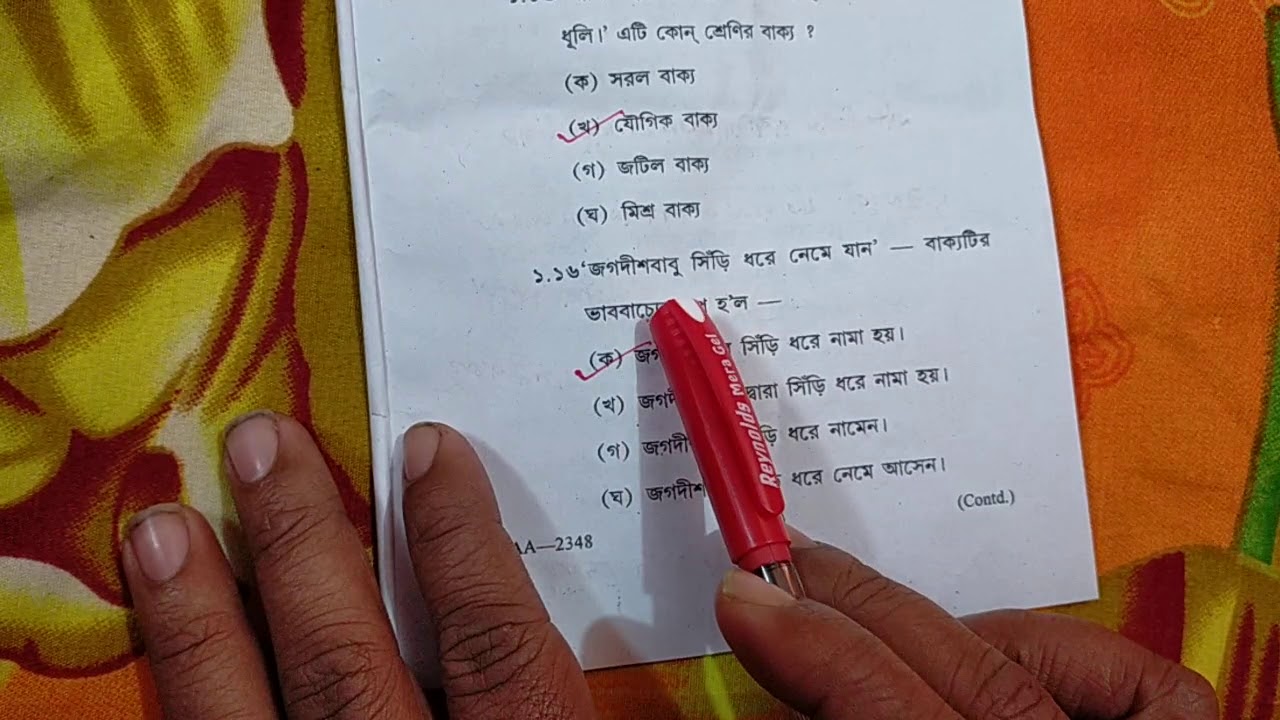 ধূলি।' এটি কোন্ শ্রেণির বাক্য ?
(ক) সরল বাক্য
(খ) যৌগিক বাক্য
(গ) জটিল বাক্য
(ঘ) মিশ্র বাক্য
১.১৬ 'জগদীশবাবু সিঁড়ি ধরে নেমে যান' — বাক্যটির
হ'ল —
(ক) সিঁড়ি ধরে নামা হয়।
(খ) দ্বারা সিঁড়ি ধরে নামা হয়।
(গ) ধরে নামেন।
(ঘ) ধরে নেমে আসেন।
(Contd.)
AA—2348
Reynolds Mera Gel